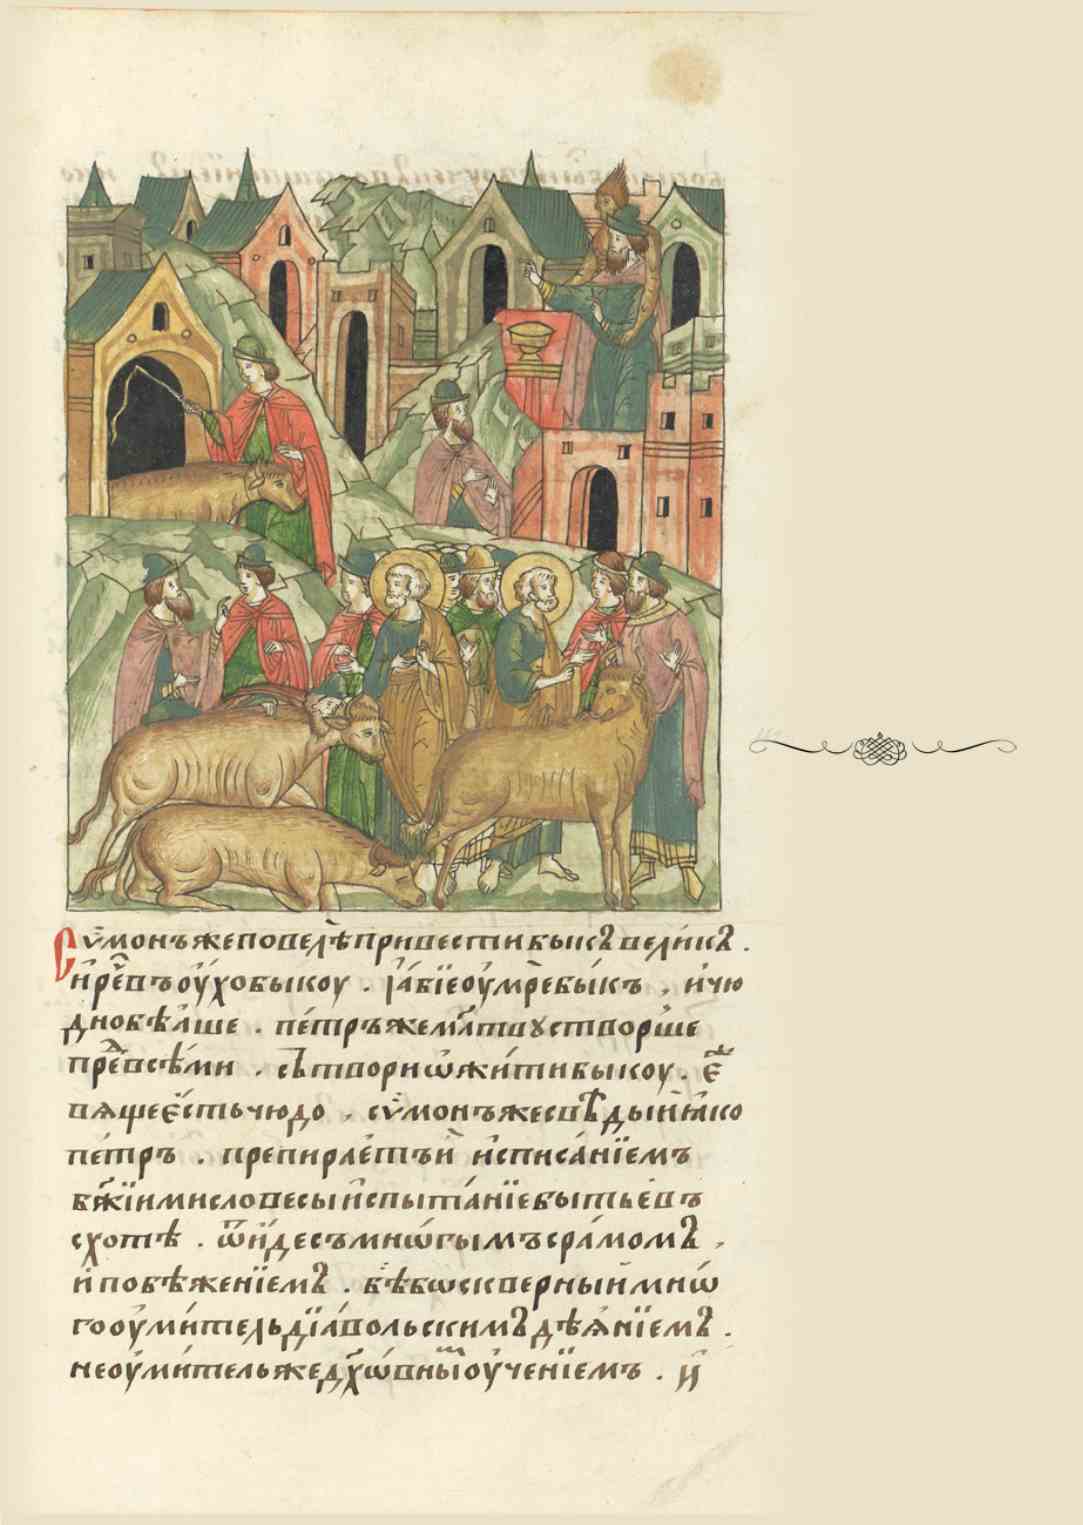 Сѵ́монъ же повелѣ̀ привести быкъ вели́къ .
и҆ рече̑ въ оу҆́хо быкоу . ꙗ҆́бїе оу҆́мре бы́къ , и҆ чю
дно бѣ́ѧше . пе́тръ же мл҃твꙋ створше
пред̾ всѣ́ми . сътвори ѡ҆жи́ти быкоу . е҆́ж̾
вѧще е҆́сть чюдо , сѵ́монъ же свѣ́дый ꙗ҆́ко
пе́тръ . препирае́тъ и҆̀ и҆ писа́нїемъ
бж҃їими словесы и҆ спыта́нїе бытье въ
схотѣ . ѿи́де съ мнѡ́гымъ сра́момъ ,
и҆ побѣженїемъ . бѣ̀ бо скверный мнѡ́
го оу҆ми́тель дїа́вольскимъ дѣѧ́нїемъ .
не оу҆ми́тель же дх҃ѡ́вным̾ оу҆ченїемъ . и҆̀